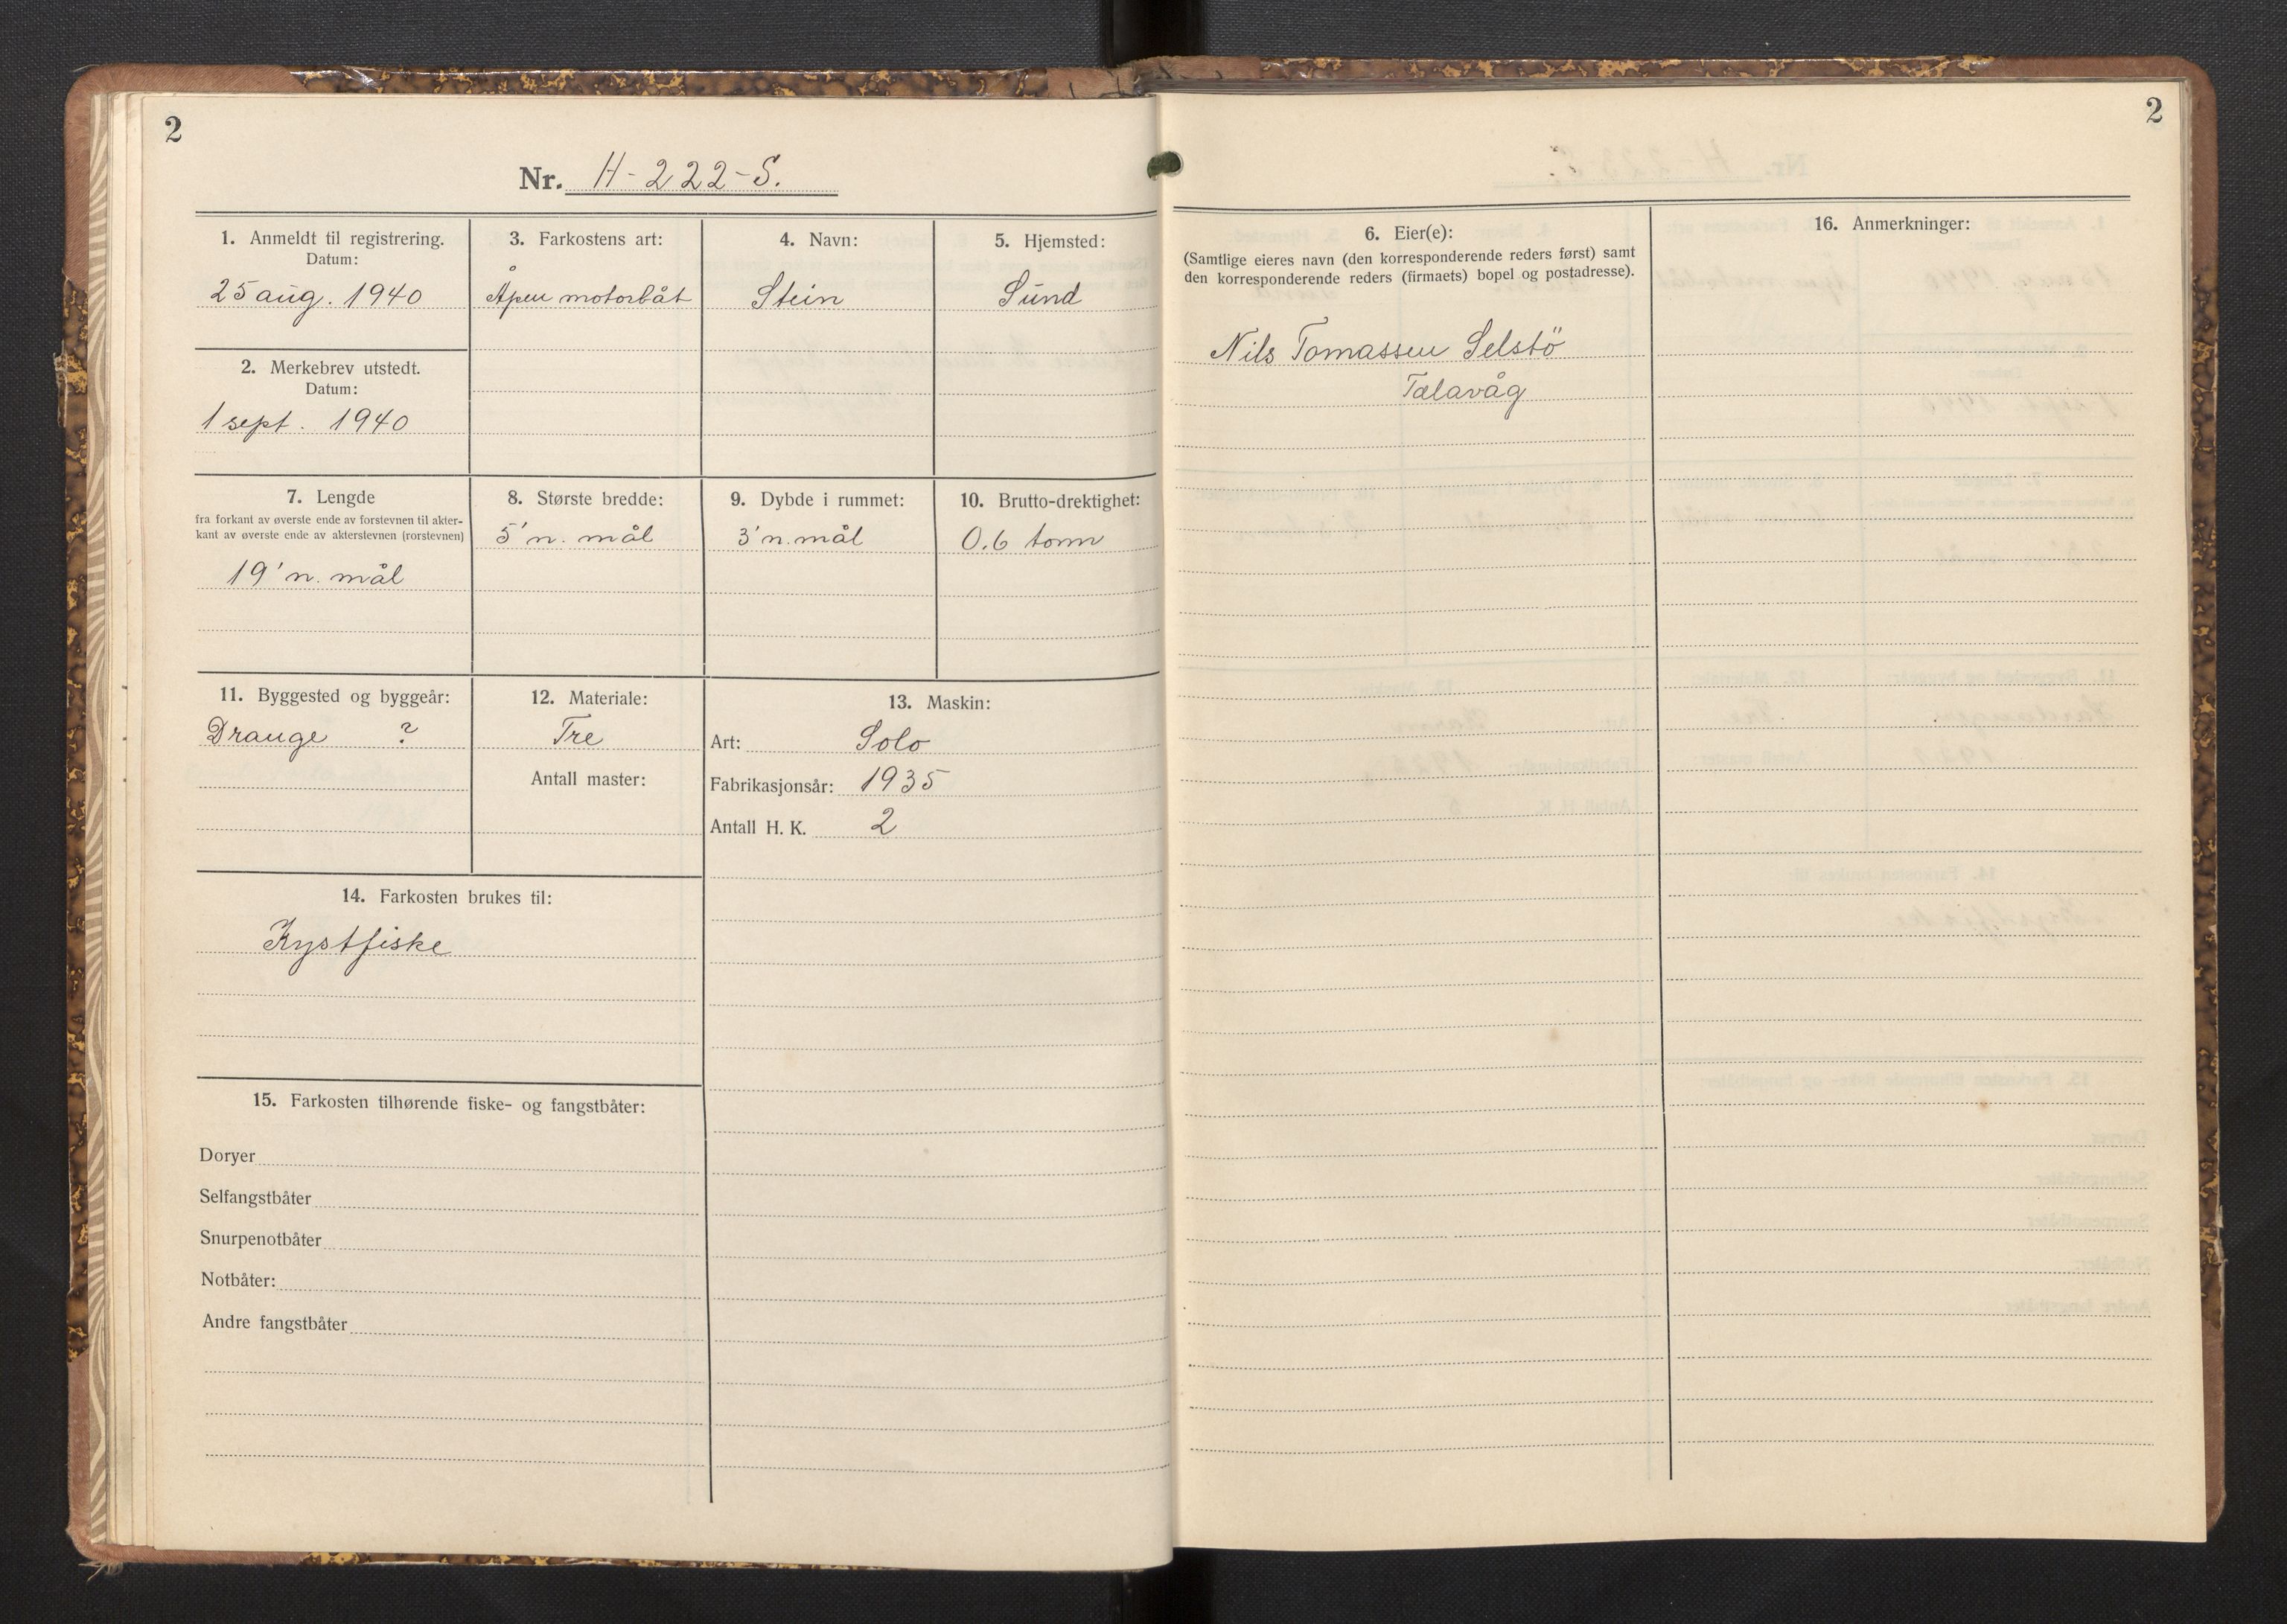 2
Nr. H-222-S.
1. Anmeldt til registrering.
Datum:
25 aug. 1940
2. Merkebrev utstedt.
Datum:
1 sept. 1940
3. Farkostens art:
Åpen motorbåt
4. Navn:
Stein
5. Hjemsted:
Sund
7. Lengde
fra forkant av øverste ende av forstevnen til akter-
kant av øverste ende av akterstevnen (rorstevnen)
19' n. mål
8. Største bredde:
5' n. mål
9. Dybde i rummet:
3' n. mål
10. Brutto-drektighet:
0.6 tonn
11. Byggested og byggeår:
Drange ?
12. Materiale:
Tre
Antall master:
13. Maskin:
Art: Solo
Fabrikasjonsår: 1935
Antall H. K. 2
14. Farkosten brukes til:
Kystfiske
15. Farkosten tilhørende fiske- og fangstbåter:
Doryer
Selfangstbåter
Snurpenotbåter
Notbåter:
Andre fangstbåter
2
6. Eier(e):
(Samtlige eieres navn (den korresponderende reders først) samt
den korresponderende reders (firmaets) bopel og postadresse).
Nils Tomassen Selstö
Tælavåg
16. Anmerkninger: